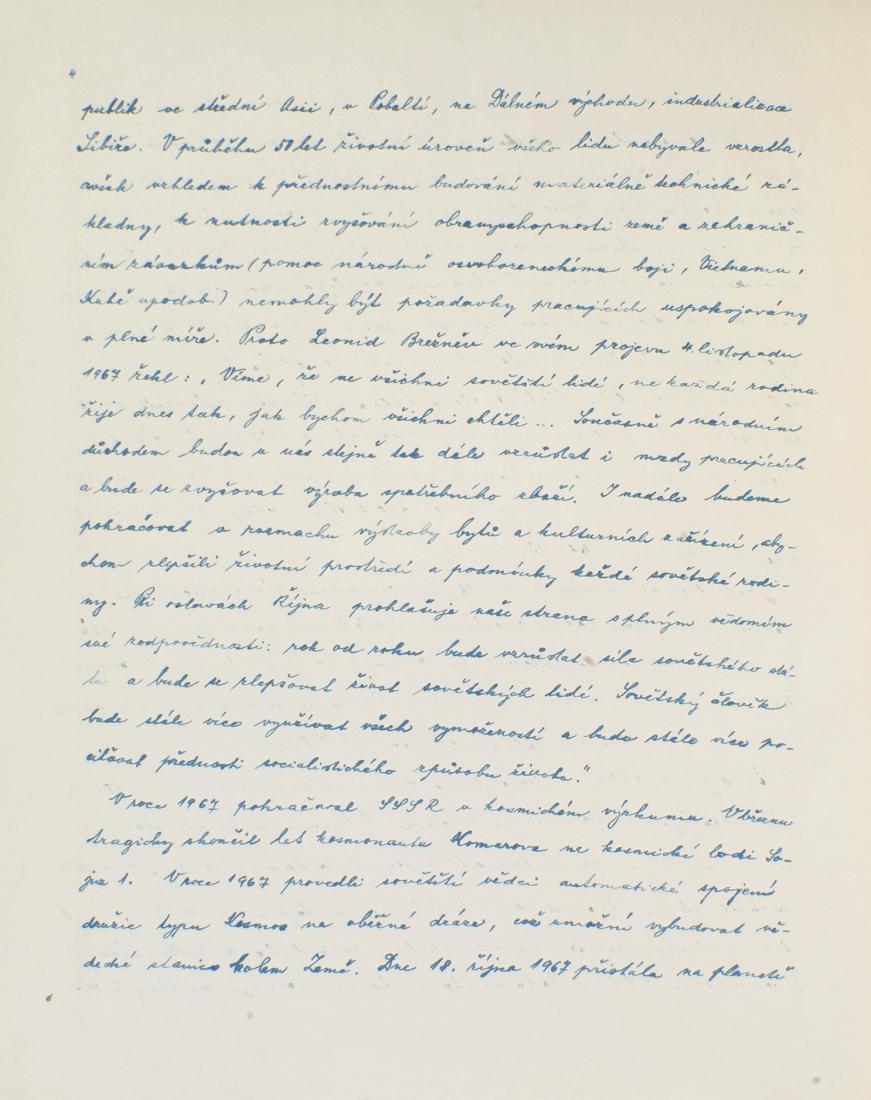 publik ve střední Asii, v Pobaltí, na Dálném východu, industrializace
Sibiře. V průběhu 50 let životní úroveň všeho lidu nebývale vzrostla,
avšak vzhledem k přednostnímu budování materiálně technické zá-
kladny, k nutnosti zvyšování obranyschopnosti země a zahranič-
ním závazkům (pomoc národně osvobozeneckému boji, Vietnamu,
Kubě apodob.) nemohly být požadavky pracujících uspokojovány
v plné míře. Proto Leonid Brežněv ve svém projevu 4. listopadu
1967 řekl: „Víme, že ne všichni sovětští lidé, ne každá rodina
žije dnes tak, jak bychom všichni chtěli ... Současně s národním
důchodem budou u nás stejně tak dále vzrůstat i mzdy pracujících
a bude se zvyšovat výroba spotřebního zboží. I nadále budeme
pokračovat v rozmachu výstavby bytů a kulturních zařízení, aby-
chom zlepšili životní prostředí a podmínky každé sovětské rodi-
ny. Při oslavách Října prohlašuje naše strana s plným vědomím
své zodpovědnosti: rok od roku bude vzrůstat síla sovětského stá-
tu a bude se zlepšovat život sovětských lidí. Sovětský člověk
bude stále více využívat všech vymožeností a bude stále více po-
ciťovat přednosti socialistického způsobu života."
V roce 1967 pokračoval SSSR v kosmickém výzkumu. V březnu
tragicky skončil let kosmonauta Komarova na kosmické lodi So-
juz 1. V roce 1967 provedli sovětští vědci automatické spojení
družic typu Kosmos na oběžné dráze, což umožní vybudovat vě-
decké stanice kolem Země. Dne 18. října 1967 přistála na planetě